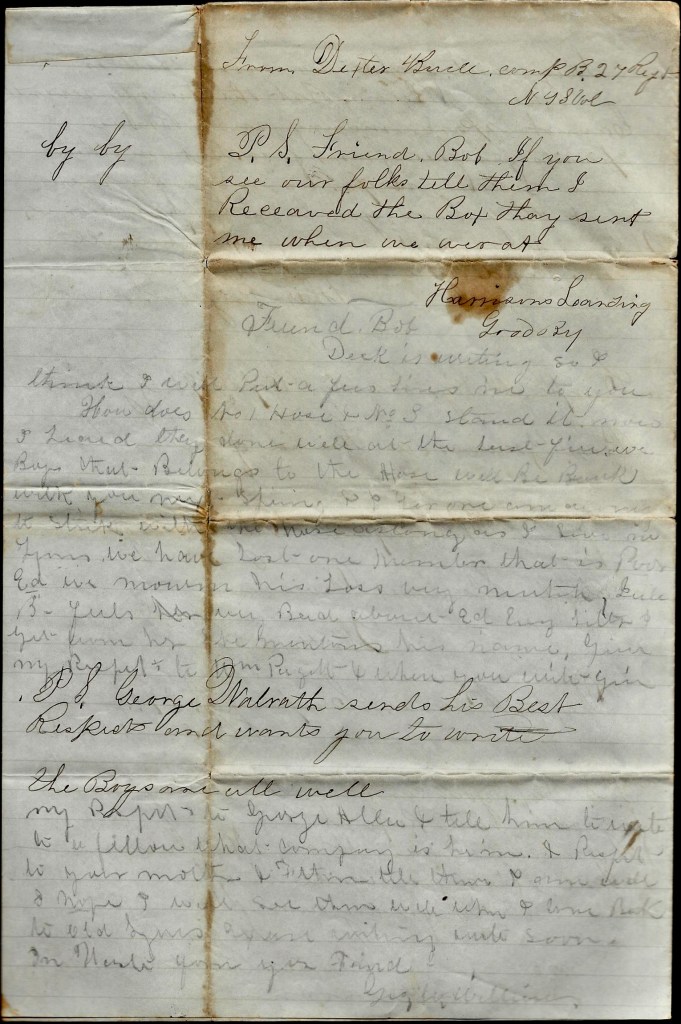 From Dexter Buell. comp B. 27 Regt
N Y S Vol
by by
P. S. Friend. Bob If you
see our folks tell them I
Receaved the Box thay sent
me when we wer at
Harrisons Leanding
Goodby
Friend. Bob
Deck is writing so I
think I will Put a few lines in to you
How does No 1 Hose & No 3 stand it.
I heard they done well at the last fire, we
Boys that Belongs to the Hose will Be Back
with you next Spring
to stick with the Hose as long as I live in
Lyons we have Lost one member that is Poor
Ed we mourn his Loss very much,
B. feels very Bad about Ed Evry letter I
get from her she mentions his name, Give
my Respets to Wm & when you write give
P. S. George Walrath sends his Best
Respects and wants you to write
the Boys are all well
my Respets to George Allen & tell him to write
to a fellow what company is he in. & Respet
to your mother & Father tell them I am well
& hope I will see them well when I come Back
to old Lyons Excuse writing write soon.
your Friend
Geo W Williams